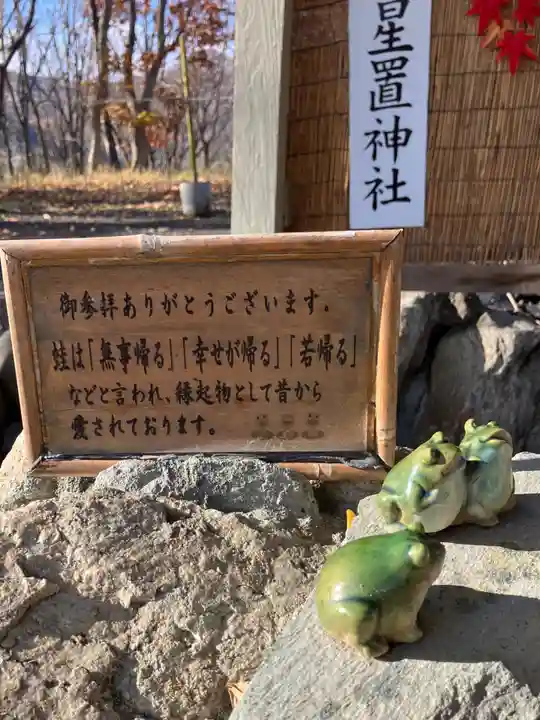 星置神社
御参拝ありがとうございます。
蛙は「無事帰る」「幸せが帰る」「若帰る」
などと言われ、縁起物として昔から
愛されております。